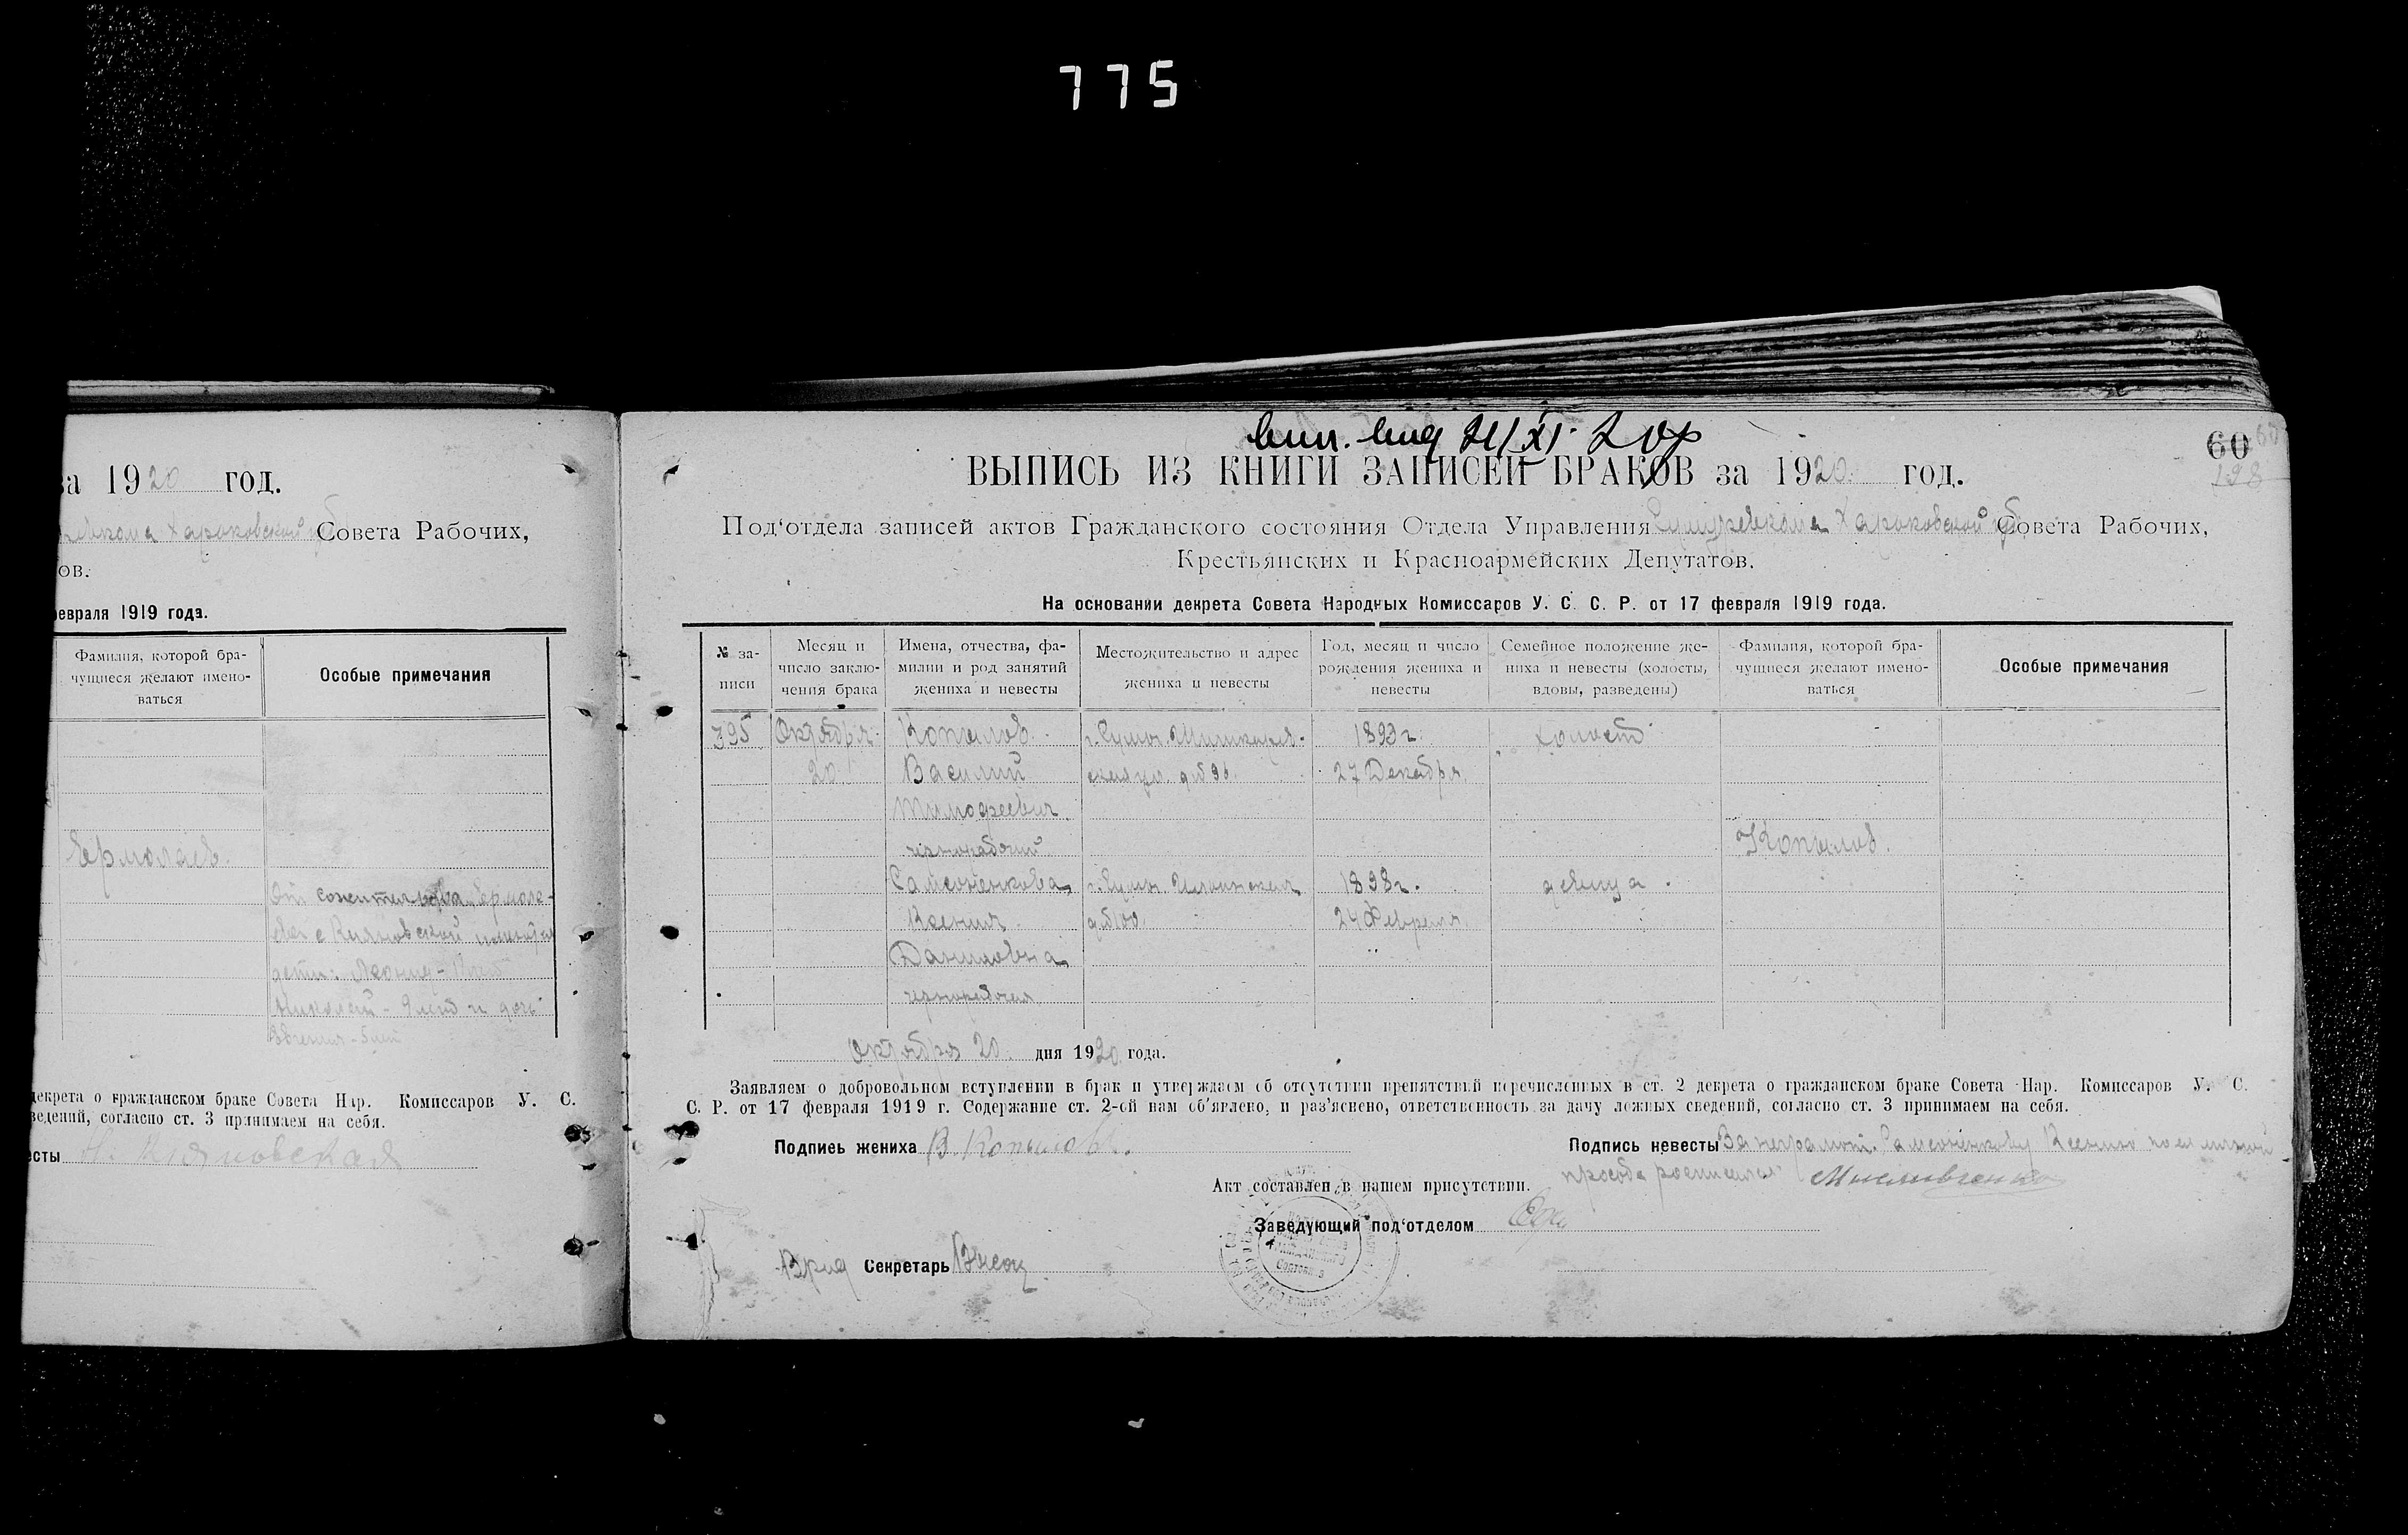 775
за 1920 год.
Харьковской Совета Рабочих,
ов.
февраля 1919 года.
Фамилия, которой бра-
чущиеся желают имено-
ваться
Особые примечания
Ермолаев.
От сожительства Ермола-
ева с Кияновской
дети: Леонид -
Николай - 9 лет и дочь
Евгения - 5 лет
декрета о гражданском браке Совета Нар. Комиссаров У. С.
ведений, согласно ст. 3 принимаем на себя.
есты Н. Кияновская
вып. выд 21/XI 20р
60
198
ВЫПИСЬ ИЗ КНИГИ ЗАПИСЕЙ БРАКОВ за 1920 год.
Под‘отдела записей актов Гражданского состояния Отдела Управления Сумуревкома Харьковской губ Совета Рабочих,
Крестьянских и Красноармейских Депутатов.
На основании декрета Совета Народных Комиссаров У. С. С. Р. от 17 февраля 1919 года.
№ за-
писи
Месяц и
число заклю-
чения брака
Имена, отчества, фа-
милии и род занятий
жениха и невесты
Местожительство и адрес
жениха и невесты
Год, месяц и число
рождения жениха и
невесты
Семейное положение же-
ниха и невесты (холосты,
вдовы, разведены)
Фамилия, которой бра-
чущиеся желают имено-
ваться
Особые примечания
395 Октября Копылов г. Сумы 1893 г. холост
20 Василий д № 96 27 Декабря
Тимофеевич
чернорабочий Копылов.
Самсоненкова г. Сумы 1898 г. девица
Ксения д № 100 24 Февраля
Даниловна
чернорабочая
Октября 20 дня 1920 года.
Заявляем о добровольном вступлении в брак и утверждаем об отсутствии препятствий перечисленных в ст. 2 декрета о гражданском браке Совета Нар. Комиссаров У. С.
С. Р. от 17 февраля 1919 г. Содержание ст. 2-ой нам об'явлено, и раз'яснено, ответственность за дачу ложных сведений, согласно ст. 3 принимаем на себя.
Подпись жениха В. Копылов.
Подпись невесты За неграмот. Самсоненкову Ксению по ее личной
просьбе росписался
Акт составлен в нашем присутствии.
Заведующий под‘отделом
Врид Секретарь